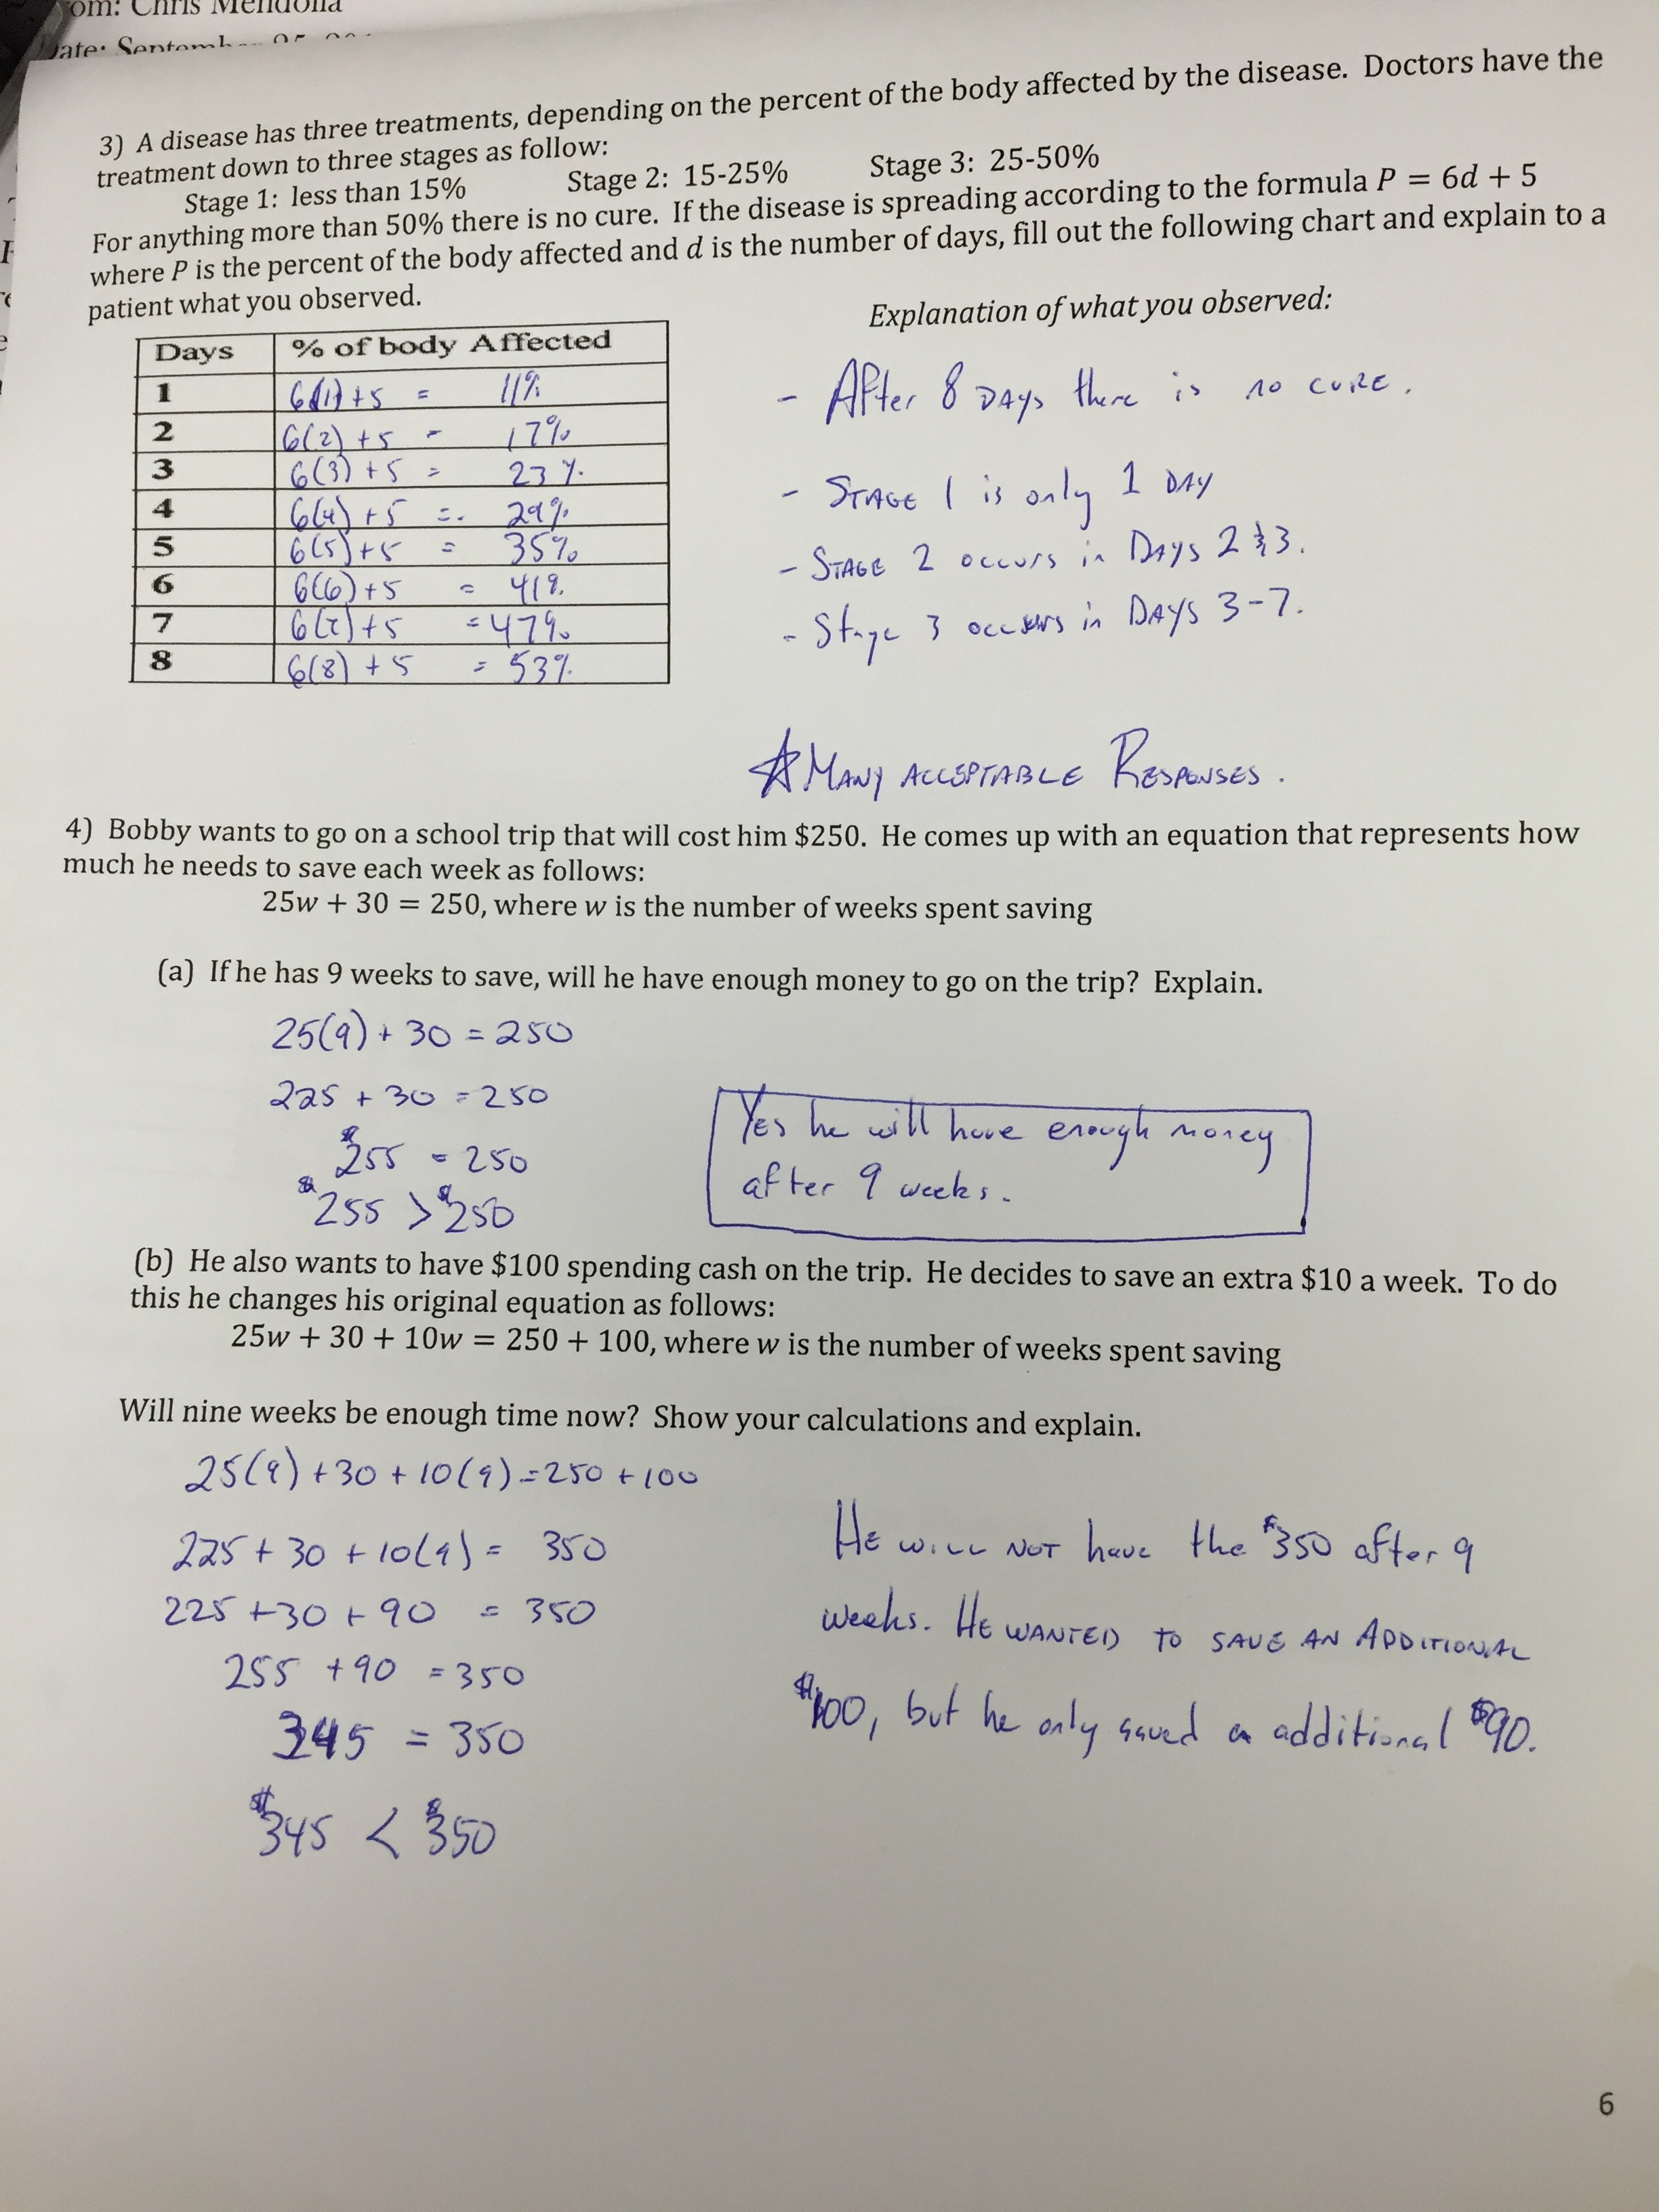 om: Chris Mendolla
Date: September 25,
3) A disease has three treatments, depending on the percent of the body affected by the disease. Doctors have the
treatment down to three stages as follow:
Stage 1: less than 15% Stage 2: 15-25% Stage 3: 25-50%
For anything more than 50% there is no cure. If the disease is spreading according to the formula P = 6d + 5
where P is the percent of the body affected and d is the number of days, fill out the following chart and explain to a
patient what you observed.
Explanation of what you observed:
Days % of body Affected
1 6(1)+5 = 11%
2 6(2)+5 = 17%
3 6(3)+5 = 23%
4 6(4)+5 = 29%
5 6(5)+5 = 35%
6 6(6)+5 = 41%
7 6(7)+5 = 47%
8 6(8)+5 = 53%
- After 8 DAYs there is no CURE.
- STAGE 1 is only 1 DAY
- STAGE 2 occurs in DAYS 2 & 3.
- Stage 3 occurs in DAYS 3-7.
☆ MANY ACCEPTABLE RESPONSES.
4) Bobby wants to go on a school trip that will cost him $250. He comes up with an equation that represents how
much he needs to save each week as follows:
25w + 30 = 250, where w is the number of weeks spent saving
(a) If he has 9 weeks to save, will he have enough money to go on the trip? Explain.
25(9) + 30 = 250
225 + 30 = 250
$255 = 250
$255 > $250
Yes he will have enough money
after 9 weeks.
(b) He also wants to have $100 spending cash on the trip. He decides to save an extra $10 a week. To do
this he changes his original equation as follows:
25w + 30 + 10w = 250 + 100, where w is the number of weeks spent saving
Will nine weeks be enough time now? Show your calculations and explain.
25(9) + 30 + 10(9) = 250 + 100
225 + 30 + 10(9) = 350
225 + 30 + 90 = 350
255 + 90 = 350
345 = 350
$345 < $350
HE WILL NOT have the $350 after 9
weeks. HE WANTED TO SAVE AN ADDITIONAL
$100, but he only saved an additional $90.
6